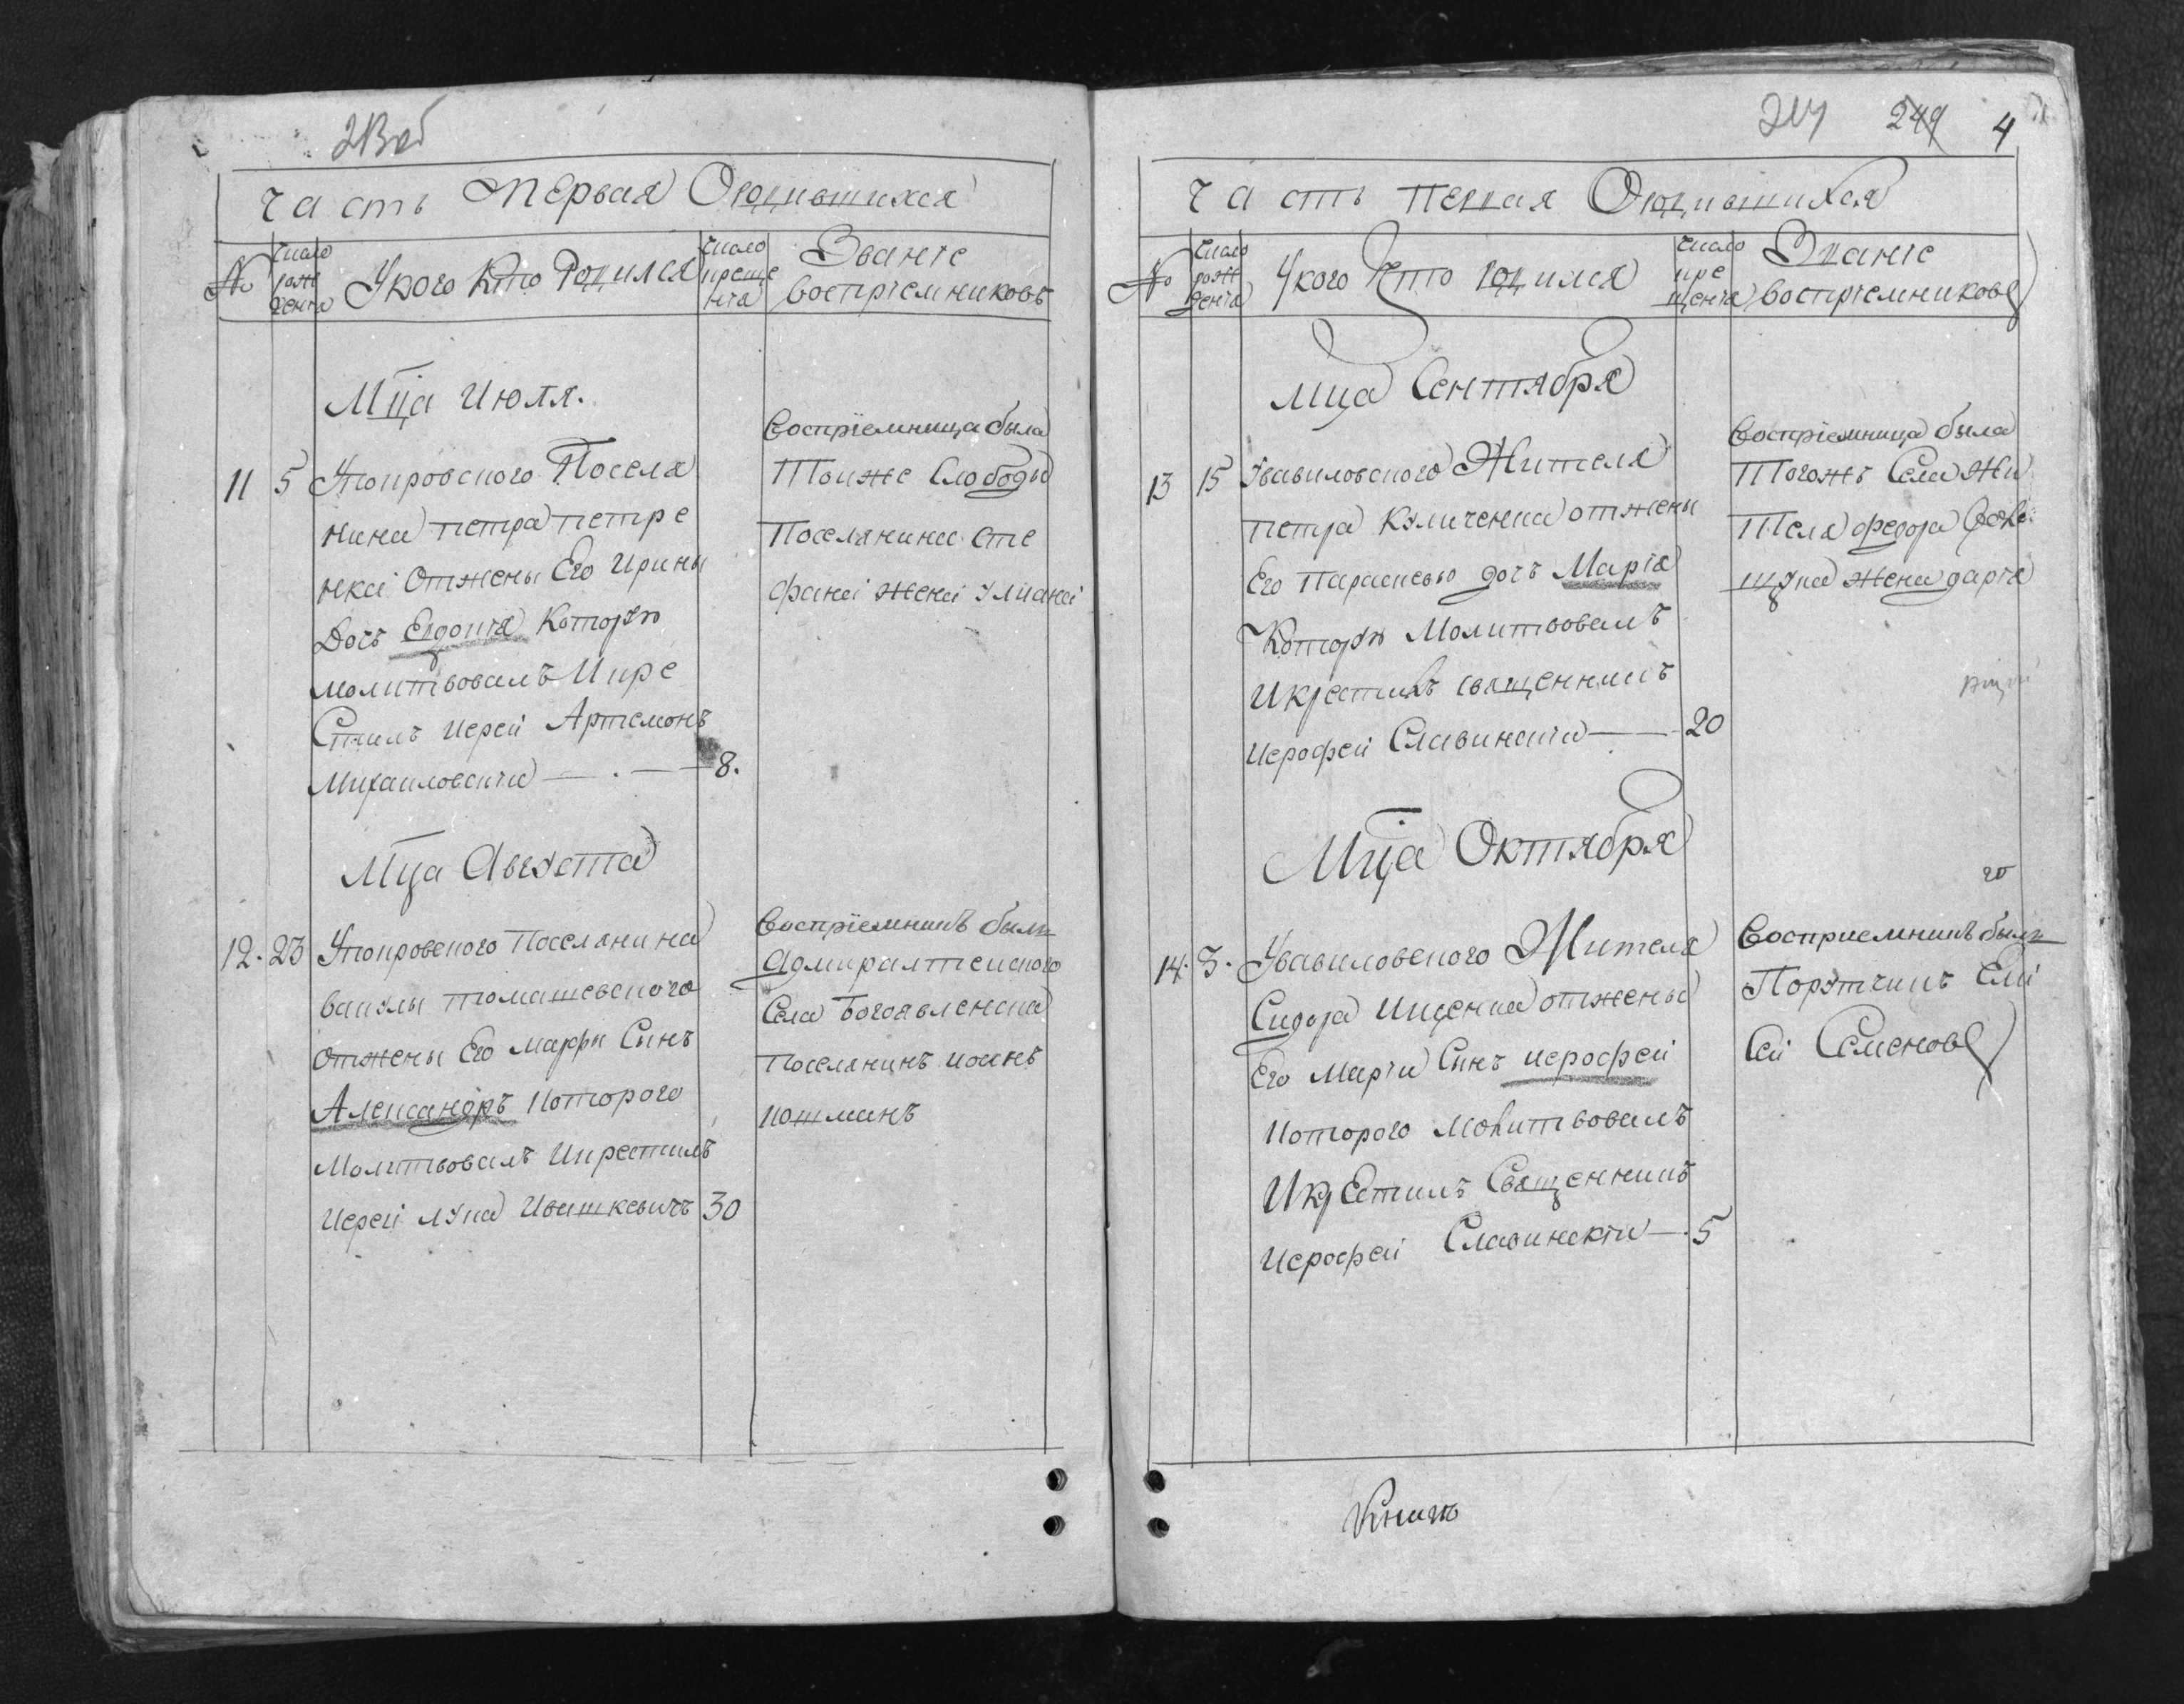 часть первая О родившихся
№
число рождения
У кого Кто Родился
число крещения
Званіе воспріемниковъ
Мца Июля.
11
5
Упокровского Посела
нина петра петре
нка Отжены Его Ирины
Дочь Евдокия Которую
молитвовалъ Икре
Стилъ Иерей Артемонъ
Михаиловский
8.
Воспріемница была
Тоиже Слободы
Поселянина сте
фана жена улиана
Мца Августа
12.
23
Упокровского Поселянина
вакулы томашевского
отжены Его марфи Сынъ
Александръ которого
Молитвовалъ Икрестилъ
Иерей лука Ивашкевичъ
30
Воспріемникъ былъ
Адмиралтейского
Села Богоявленска
Поселянинъ иоанъ
кошманъ
249
4
часть первая О родившихся
№
число рождения
У кого кто родился
число крещения
Званіе воспріемниковъ
Мца Сентября
13
15
Увавиловского Жителя
петра Куличенка отжены
Его Параскевы дочъ Марія
Которую Молитвовалъ
Икрестилъ священникъ
Иерофей Славинский
20
Воспріемница была
Тогожъ Села Жи
Теля федора
жена дария
Мца Октября
14.
3.
Увавиловского Жителя
Сидора Ищенка отжены
Его Марии Синъ иерофей
которого молитвовалъ
Икрестилъ Священникъ
Иерофей Славинский
5
Восприемникъ былъ
Поручикъ Ели
Сей Семеновъ